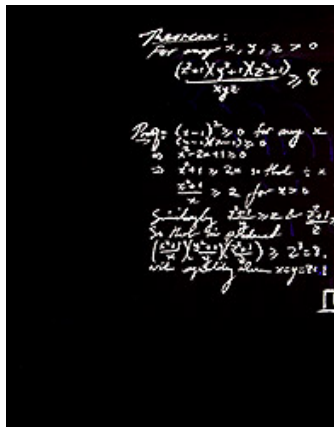 Theorem:
For any x, y, z > 0
(x²+1)(y²+1)(z²+1)/xyz ≥ 8
Proof: (x-1)² ≥ 0 for any x
⇒ (x-1)(x-1) ≥ 0
⇒ x²-2x+1 ≥ 0
⇒ x²+1 ≥ 2x so that ÷ x
(x²+1)/x ≥ 2 for x>0
Similarly (y²+1)/y ≥ 2 & (z²+1)/z ≥
So that the product
((x²+1)/x)((y²+1)/y)((z²+1)/z) ≥ 2³=8,
with equality when x=y=z=1